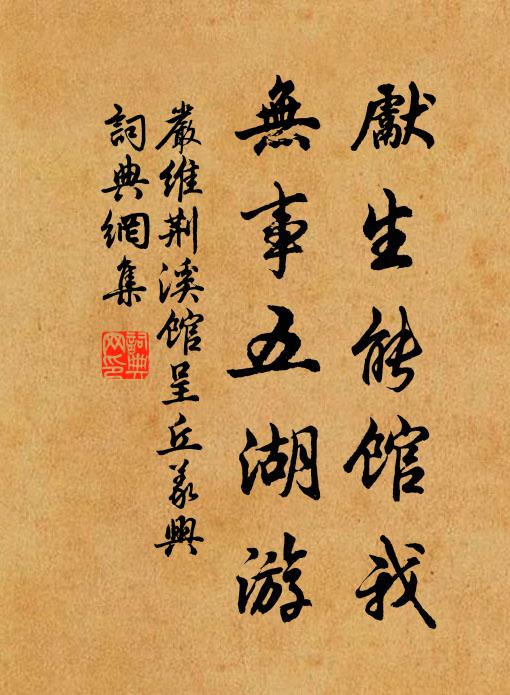 獻生能館我
無事五湖游
嚴維荆溪館呈丘義興
詞典網集
詞典
网印